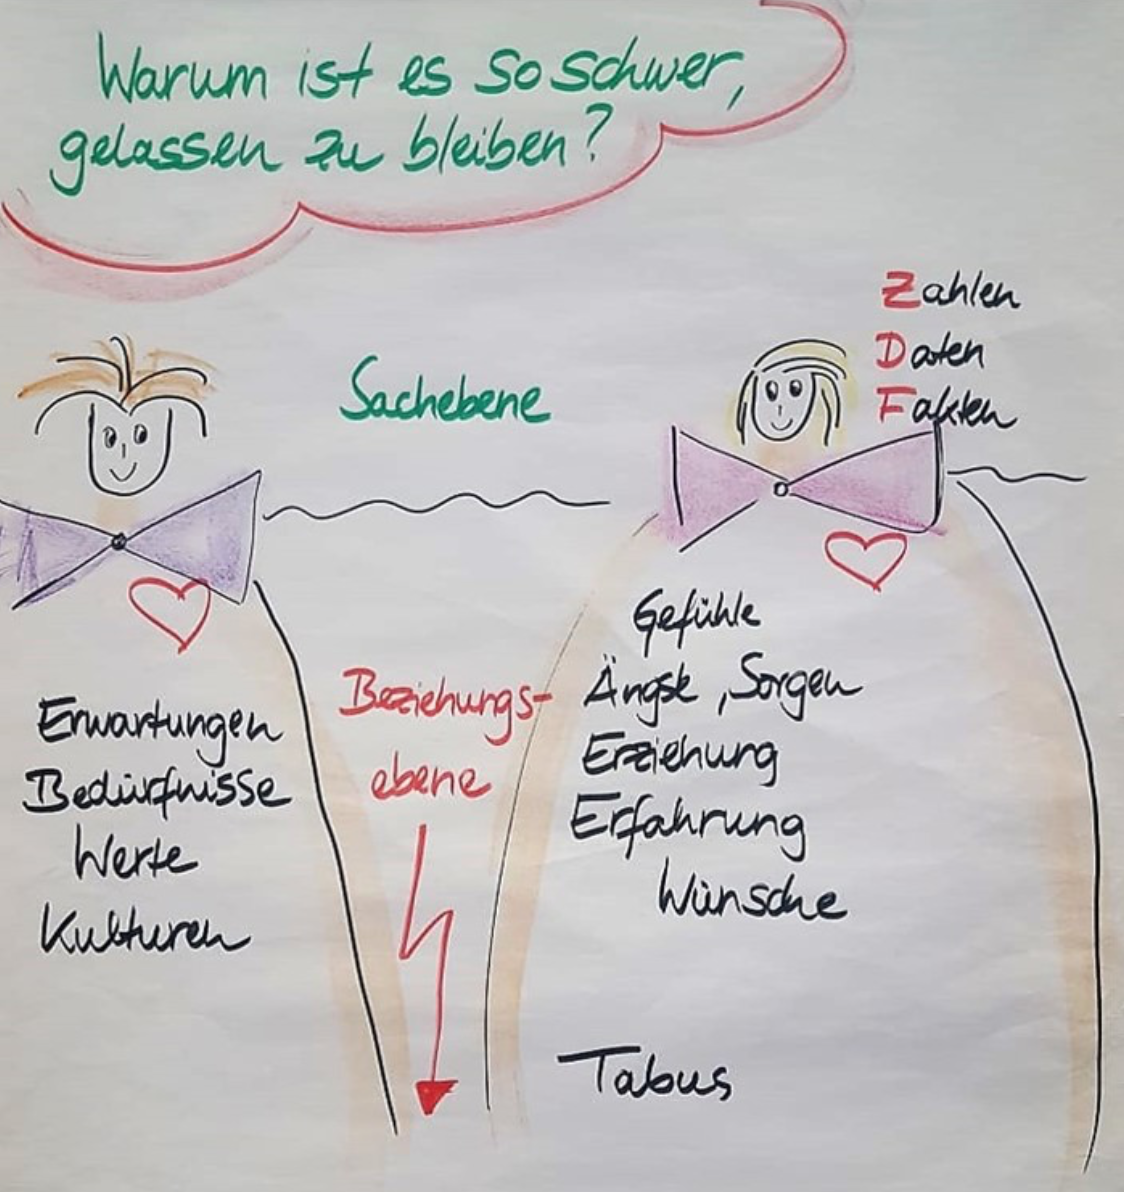 Warum ist es so schwer,
gelassen zu bleiben?
Zahlen
Daten
Fakten
Sachebene
Beziehungs-
ebene
Erwartungen
Bedürfnisse
Werte
Kulturen
Gefühle
Ängste, Sorgen
Erziehung
Erfahrung
Wünsche
Tabus